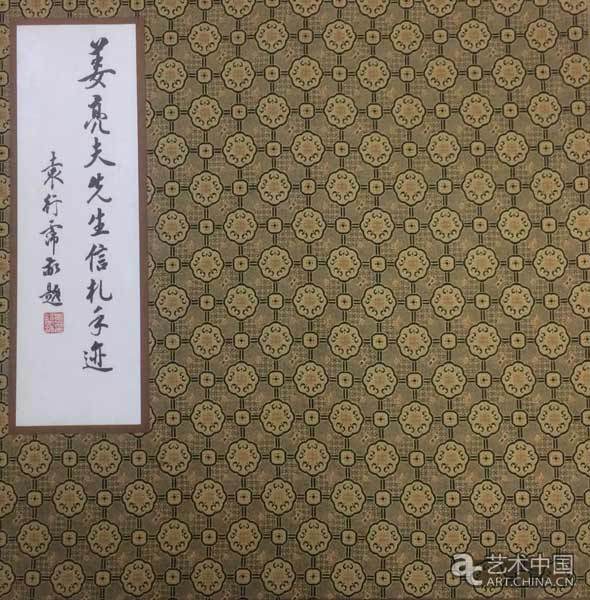 姜亮夫先生信札手迹
袁行霈敬题
艺术中国
ART.CHINA.CN